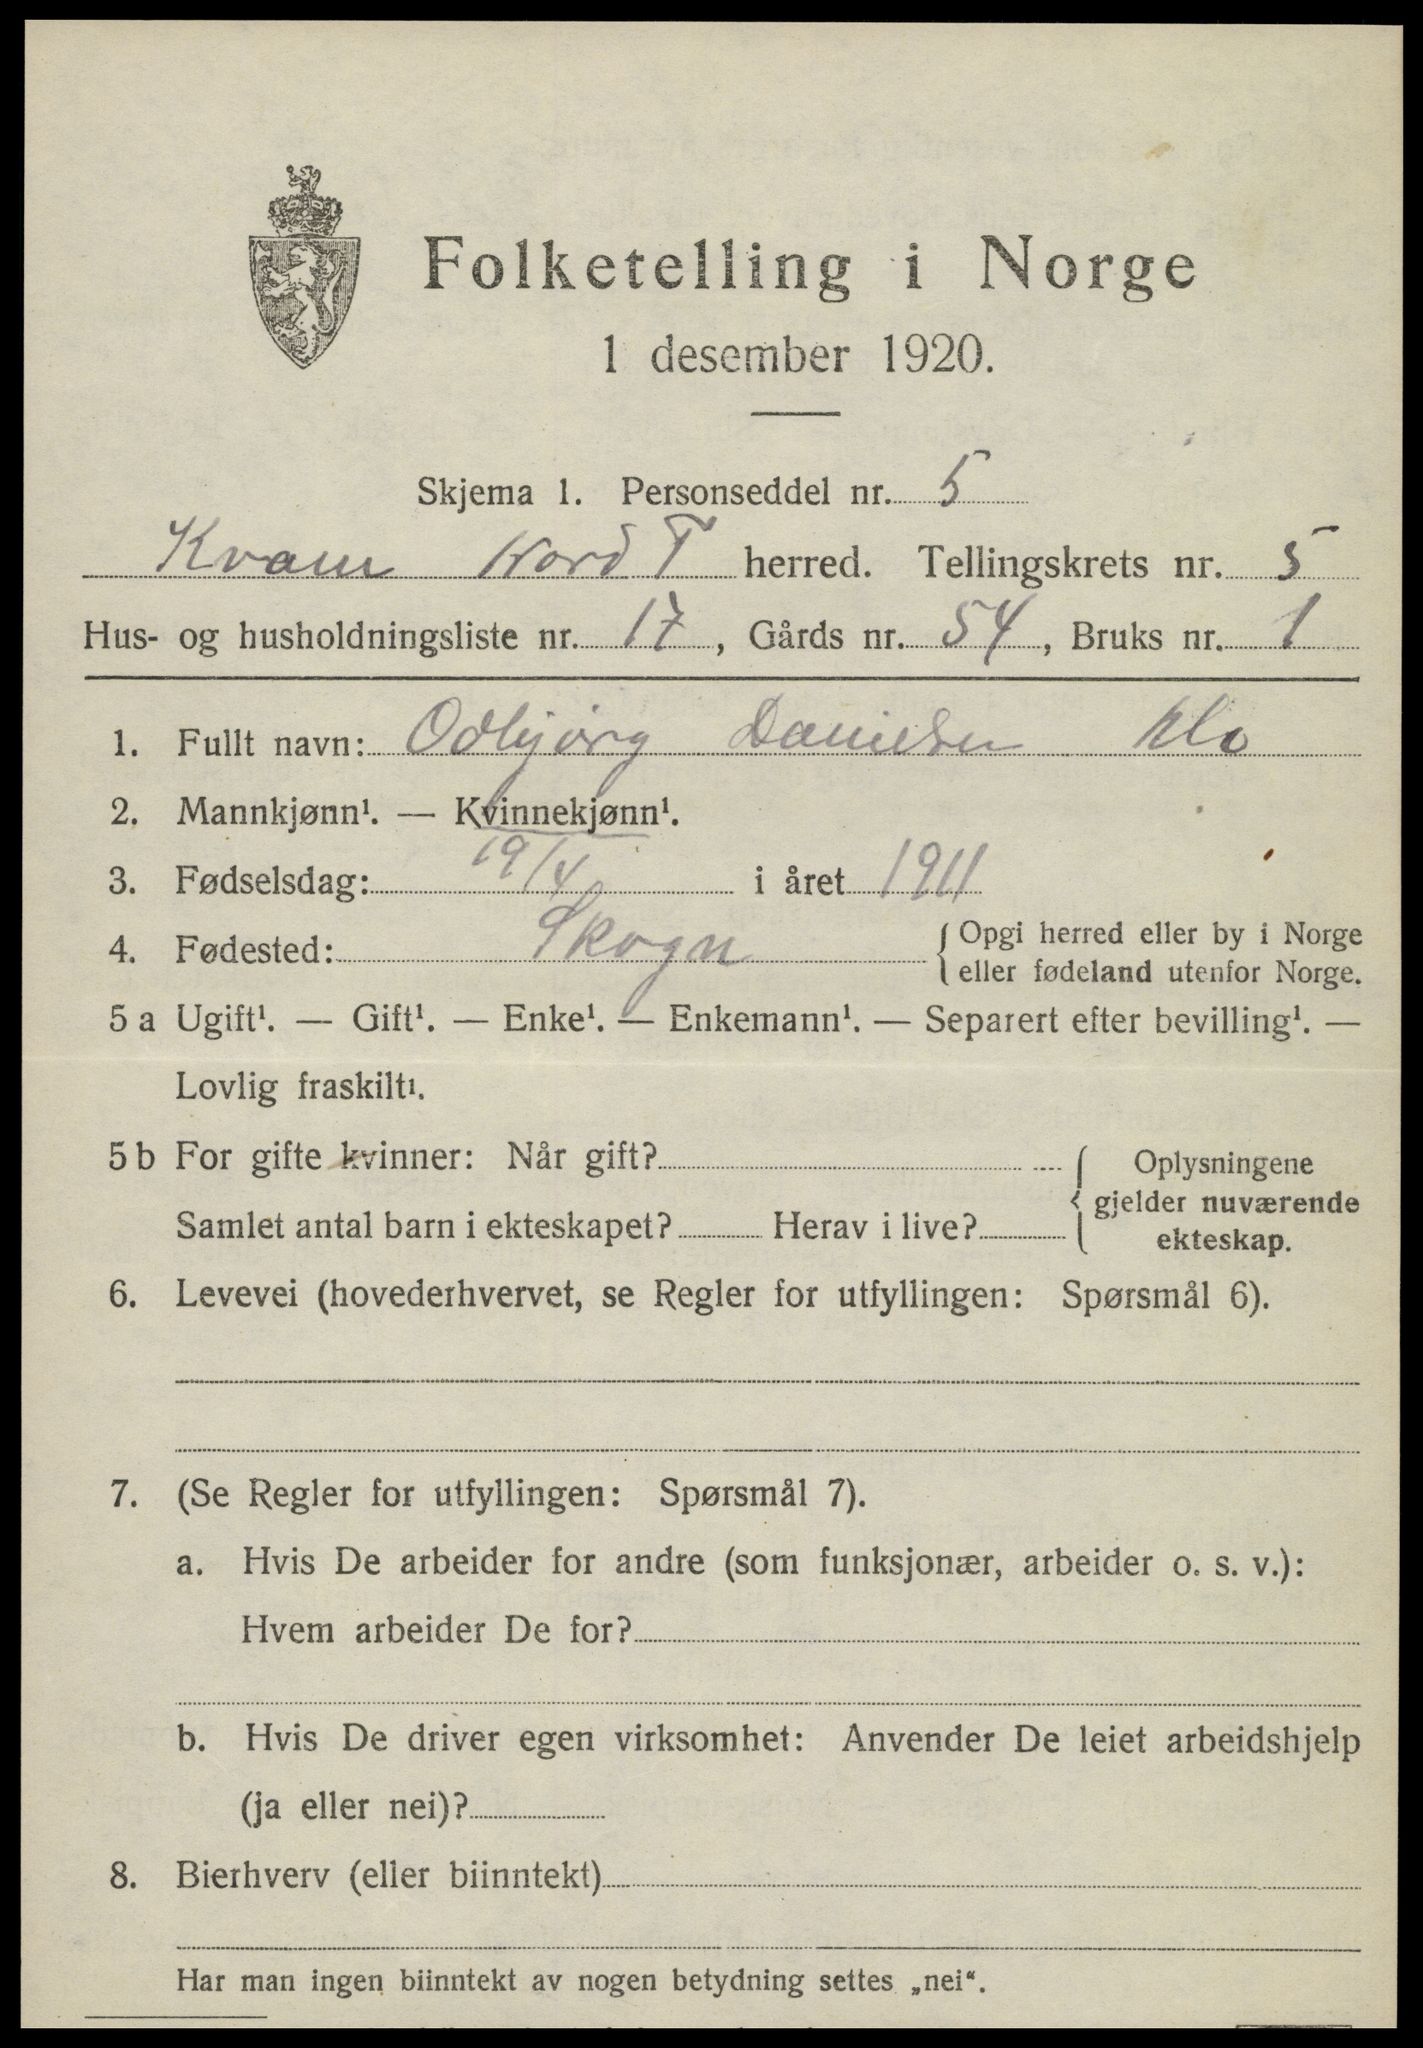 Folketelling i Norge
1 desember 1920.
Skjema 1. Personseddel nr. 5
Kvam Nord T herred. Tellingskrets nr. 5
Hus- og husholdningsliste nr. 17, Gårds nr. 54, Bruks nr. 1
1. Fullt navn: Odbjørg Danielsen
2. Mannkjønn¹. — Kvinnekjønn¹.
3. Fødselsdag: 19/4 i året 1911
4. Fødested: Skogn { Opgi herred eller by i Norge
eller fødeland utenfor Norge.
5 a Ugift¹. — Gift¹. — Enke¹. — Enkemann¹. — Separert efter bevilling¹. —
Lovlig fraskilt¹.
5 b For gifte kvinner: Når gift? { Oplysningene
gjelder nuværende
Samlet antal barn i ekteskapet? Herav i live? ekteskap.
6. Levevei (hovederhvervet, se Regler for utfyllingen: Spørsmål 6).
7. (Se Regler for utfyllingen: Spørsmål 7).
a. Hvis De arbeider for andre (som funksjonær, arbeider o. s. v.):
Hvem arbeider De for?
b. Hvis De driver egen virksomhet: Anvender De leiet arbeidshjelp
(ja eller nei)?
8. Bierhverv (eller biinntekt)
Har man ingen biinntekt av nogen betydning settes „nei“.